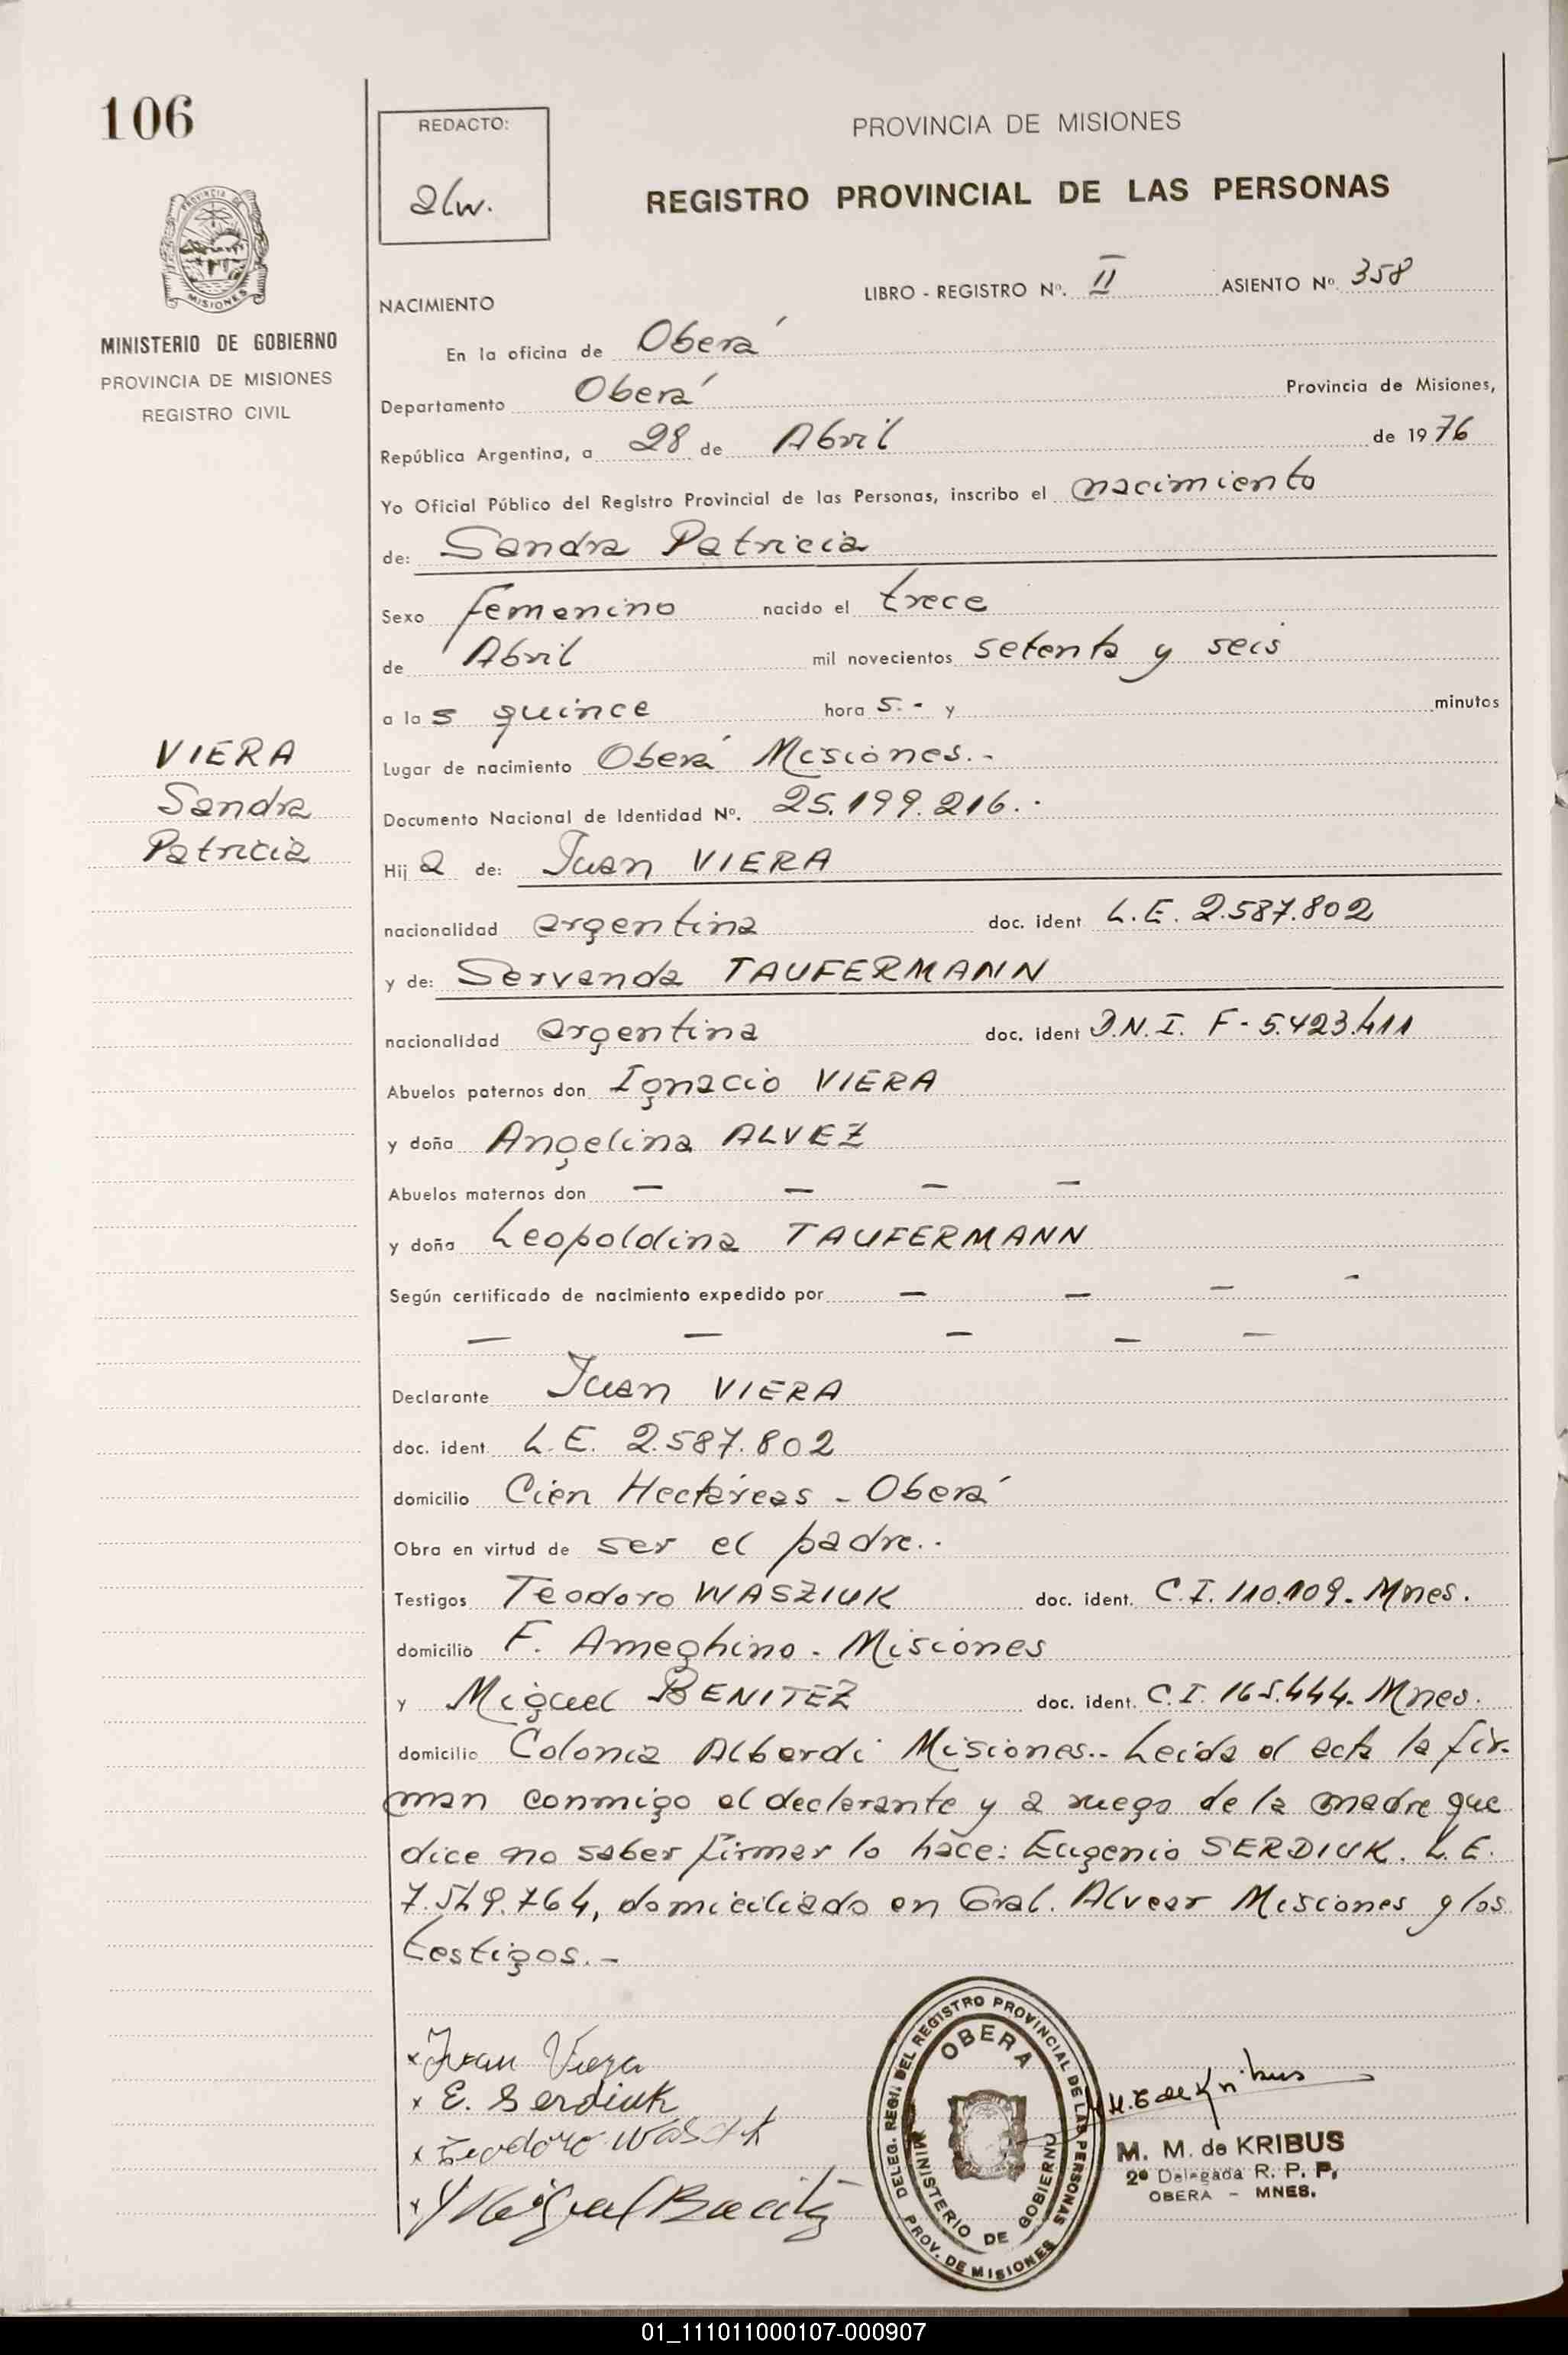 106
REDACTO:
alw.
PROVINCIA DE MISIONES
REGISTRO PROVINCIAL DE LAS PERSONAS
PROVINCIA DE
MISIONES
MINISTERIO DE GOBIERNO
PROVINCIA DE MISIONES
REGISTRO CIVIL
NACIMIENTO
LIBRO - REGISTRO Nº. II ASIENTO Nº. 358
En la oficina de Oberá
Departamento Oberá Provincia de Misiones,
República Argentina, a 28 de Abril de 1976
Yo Oficial Público del Registro Provincial de las Personas, inscribo el nacimiento
de: Sandra Patricia
Sexo femenino nacido el trece
de Abril mil novecientos setenta y seis
a las quince hora s.- y minutos
Lugar de nacimiento Oberá Misiones.-
Documento Nacional de Identidad Nº. 25.199.216.-
VIERA
Sandra
Patricia
Hija de: Juan VIERA
nacionalidad argentina doc. ident L.E. 2.587.802
y de: Servanda TAUFERMANN
nacionalidad argentina doc. ident D.N.I. F- 5.423.411
Abuelos paternos don Ignacio VIERA
y doña Angelina ALVEZ
Abuelos maternos don — — — —
y doña Leopoldina TAUFERMANN
Según certificado de nacimiento expedido por — — — -
— — — — —
Declarante Juan VIERA
doc. ident. L.E. 2.587.802
domicilio Cien Hectáreas - Oberá
Obra en virtud de ser el padre.-
Testigos Teodoro WASZIUK doc. ident. C.I. 110.109. Mnes.
domicilio F. Ameghino - Misiones
y Miguel BENITEZ doc. ident. C.I. 165.444. Mnes.
domicilio Colonia Alberdi Misiones.- Leida el acta la fir-
man conmigo el declarante y a ruego de la madre que
dice no saber firmar lo hace: Eugenio SERDIUK. L.E.
7.549.764, domiciliado en Gral. Alvear Misiones y los
testigos.-
x Juan Viera
x E. Serdiuk
x Teodoro
x Miguel
DELEG. REGI. DEL REGISTRO PROVINCIAL DE LAS PERSONAS
PROV. DE MISIONES
OBERA
MINISTERIO DE GOBIERNO
de Kribus
M. M. de KRIBUS
2ª Delegada R. P. P.
OBERA - MNES.
01_111011000107-000907